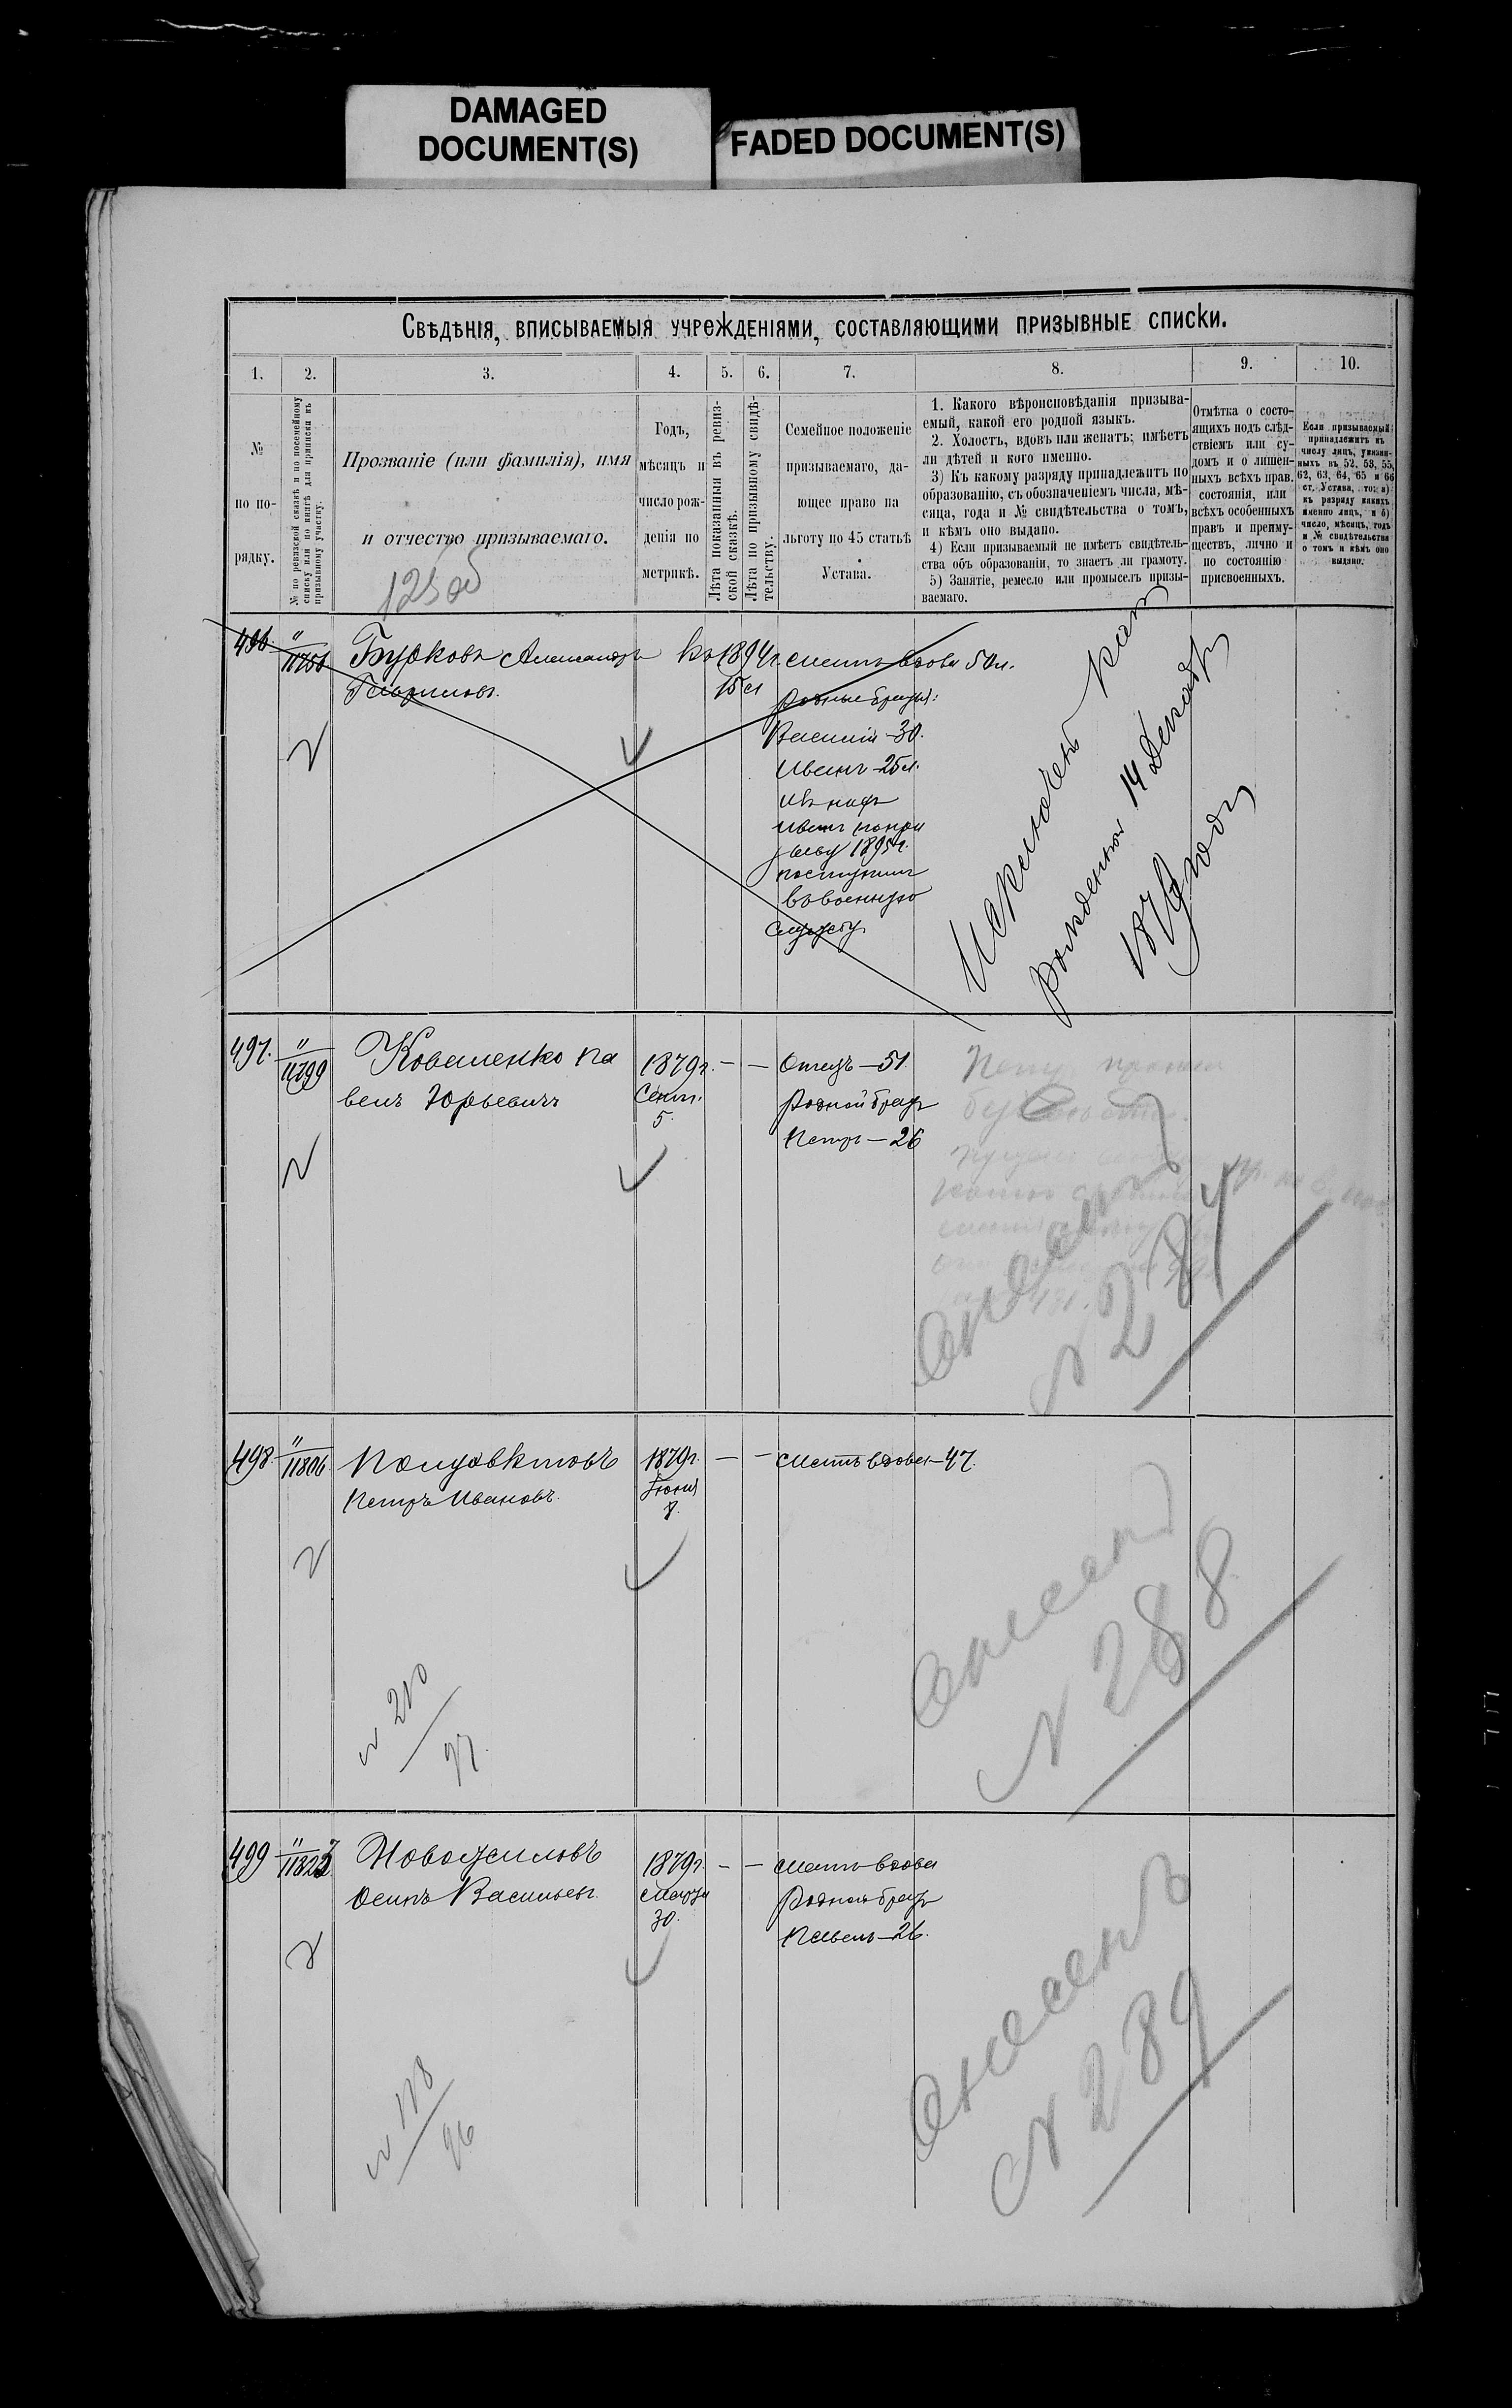 DAMAGED
DOCUMENT(S)
FADED DOCUMENT(S)
Свѣдѣнія, вписываемыя учрежденіями, составляющими призывные списки.
1. 2. 3. 4. 5. 6. 7. 8. 9. 10.
№
по по-
рядку.
№ по ревизской сказкѣ и по посемейному
списку или по книгѣ для приписки къ
призывному участку.
Прозваніе (или фамилія), имя
и отчество призываемаго.
125 об
Годъ,
мѣсяцъ и
число рож-
денія по
метрикѣ.
Лѣта показанныя въ ревиз-
ской сказкѣ.
Лѣта по призывному свидѣ-
тельству.
Семейное положеніе
призываемаго, да-
ющее право на
льготу по 45 статьѣ
Устава.
1. Какого вѣроисповѣданія призыва-
емый, какой его родной языкъ.
2. Холостъ, вдовъ или женатъ; имѣетъ
ли дѣтей и кого именно.
3) Къ какому разряду принадлежитъ по
образованію, съ обозначеніемъ числа, мѣ-
сяца, года и № свидѣтельства о томъ,
и кѣмъ оно выдано.
4) Если призываемый не имѣетъ свидѣтель-
ства объ образованіи, то знаетъ ли грамоту.
5) Занятіе, ремесло или промыселъ призы-
ваемаго.
Отмѣтка о состо-
ящихъ подъ слѣд-
ствіемъ или су-
домъ и о лишен-
ныхъ всѣхъ прав.
состоянія, или
всѣхъ особенныхъ
правъ и преиму-
ществъ, лично и
по состоянію
присвоенныхъ.
Если призываемый
принадлежитъ къ
числу лицъ, указан-
ныхъ въ 52, 53, 55,
62, 63, 64, 65 и 66
ст. Устава, то: а)
къ разряду какихъ
именно лицъ, и б)
число, мѣсяцъ, годъ
и № свидѣтельства
о томъ и кѣмъ оно
выдано.
496. "
Бурковъ Александръ
Въ 1894г.
15 л
мать вдова 50л.
родные братья:
Василій-30.
Иванъ-25л.
Иванъ
1895г.
поступилъ
въ военную
службу
Исключенъ какъ
рожденный 14 Декабря
1876 года
497. "
11799
Коваленко Па
велъ Юрьевичъ
1879г.
Сент.
5.
— —
Отецъ—51.
Родной братъ
Петръ—26
№ 287
498. "
11806
Полуэктовъ
Петръ Ивановъ.
1879г.
Іюня
— —
мать вдова—47.
№ 210
97.
Внесенъ
№ 288
499 "
Новожиловъ
Осипъ Васильевъ.
1879г.
Марта
30.
— —
мать вдова
Родной братъ
Павелъ—26.
№ 118
96
Внесенъ
№ 289